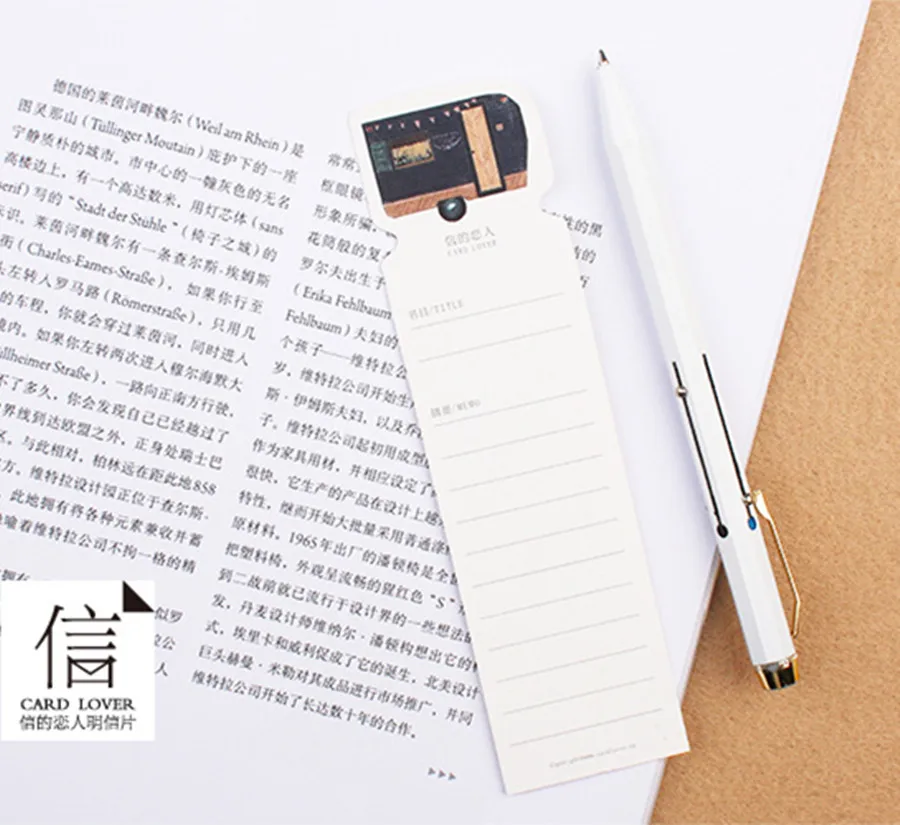 德国的莱茵河畔魏尔（Weil am Rhein）是
图灵那山（Tüllinger Moutain）庇护下的一座
宁静质朴的城市。市中心的一幢灰色的无名
高楼边上，有一个高达数米，用灯芯体（sans
serif）写的"Stadt der Stühle"（椅子之城）的
标识，莱茵河畔魏尔有一条查尔斯·埃姆斯
街（Charles-Eames-Straße），如果你行至
头左转入罗马路（Römerstraße），只用几
的车程，你就会穿过莱茵河，同时进入
境内。如果你左转两次进入穆尔海默大
üllheimer Straße），一路向正南方行驶，
不了多久，你会发现自己已经越过了
界线到达欧盟之外，正身处瑞士巴
与此相对，柏林远在距此地858
方。维特拉设计园正位于查尔斯·
此地拥有将各种元素兼收并蓄
喻着维特拉公司不拘一格的精
拥有
似罗
公
人
常常
框眼镜
形象所
花筒般的复
罗尔夫出生于
（Erika Fehlbaum
Fehlbaum）夫妇的
个孩子——维特拉
岁，维特拉公司开始生
斯·伊姆斯夫妇，以及乔
子。维特拉公司起初用成型
作为家具用材，并相应设定了
很快，它生产的产品在设计上越
特性，继而开始大批量采用普通漆
原材料。1965年出厂的潘顿椅是全
把塑料椅，外观呈流畅的猩红色"S"
到二战前就已流行于设计界的一些想法
发，丹麦设计师维纳尔·潘顿构想出它的
式，埃里卡和威利促成了它的诞生，北美设计
巨头赫曼·米勒对其成品进行市场推广，并同
维特拉公司开始了长达数十年的合作。
的黑
信的恋人
CARD LOVER
书目/TITLE
摘要/MEMO
信
CARD LOVER
信的恋人明信片